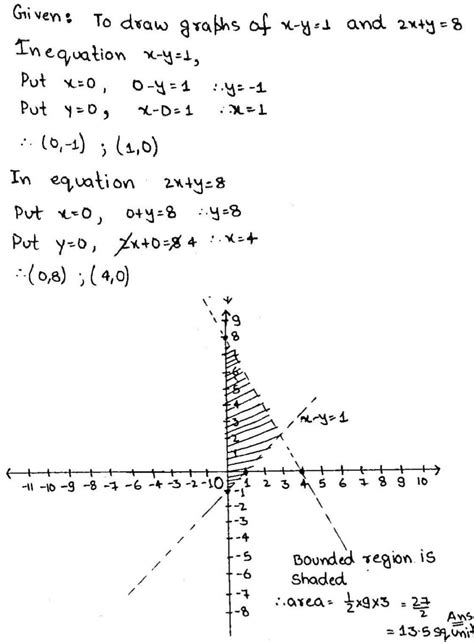 Given: To draw graphs of x-y=1 and 2x+y=8
In equation x-y=1,
Put x=0, 0-y=1 ∴y=-1
Put y=0, x-0=1 ∴x=1
∴ (0,-1) ; (1,0)
In equation 2x+y=8
Put x=0, 0+y=8 ∴y=8
Put y=0, 2x+0=8 4 ∴x=4
∴(0,8) ; (4,0)
9
8
7
6
5
4
3
2
1
x-y=1
-11 -10 -9 -8 -7 -6 -5 -4 -3 -2 -1 0 1 2 3 4 5 6 7 8 9 10
-1
-2
-3
-4
-5
-6
-7
-8
Bounded region is
shaded
∴area = 1/2 x 9 x 3 = 27/2
= 13.5 sq unit Ans